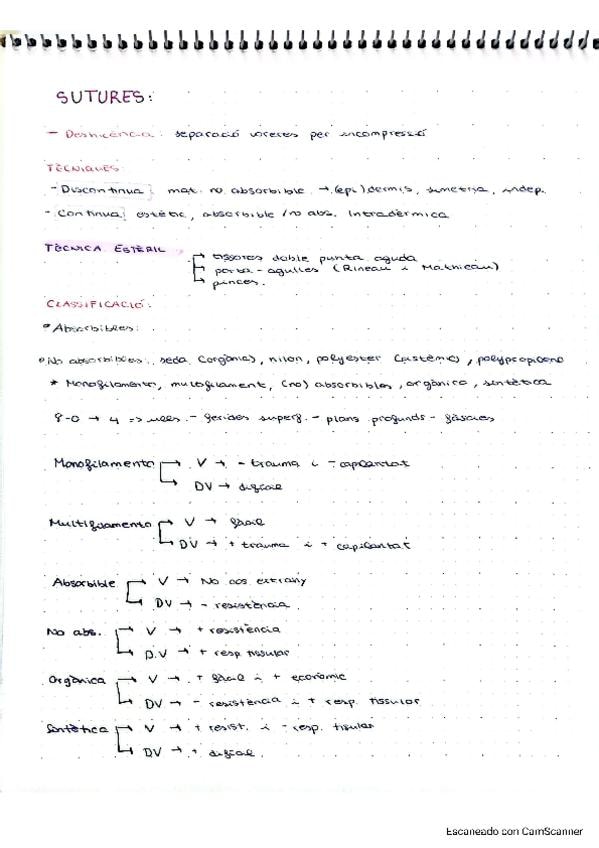 SUTURES:
- Dehicència: separació voreres per incompressió
TÈCNIQUES:
- Discontinua: mat. no absorbible → (epi)dermis, simetria, indep.
- Continua: estètic, absorbible / no abs. Intradèrmica
TÈCNICA ESTÈRIL
tissores doble punta aguda
porta-agulles (Rineau i Mathieau)
pinces.
CLASSIFICACIÓ:
• Absorbibles:
• No absorbibles: seda (orgànics), nilon, polyester
* Monofilamento, multifilament, (no) absorbibles, orgànica, sintètica
9-0 → 4 => - ferides superf. - plans profunds - fàscies
Monofilamento → V → - trauma i - capilaritat
→ DV → difícil
Multifilamento → V → fàcil
→ DV → + trauma i + capilaritat
Absorbible → V → No cos estrany
→ DV → - resistència
No abs. → V → + resistència
→ D.V → + resp tissular
Orgànica → V → + fàcil i + econòmic
→ DV → - resistència i + resp. tissular
Sintètica → V → + resist. i - resp. tisular
→ DV → + difícil.
Escaneado con CamScanner